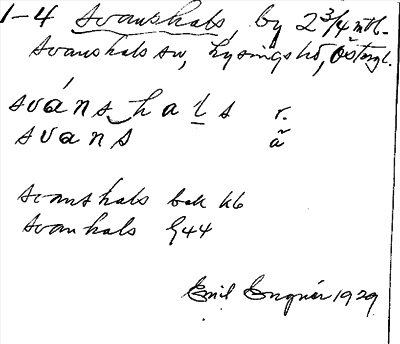 1-4 Svanshals, by 2 3/4 mtl.
Svanshals sn, Lysings hd, Östergl.
svánshals r.
svans ã
Svanshals bek kb
Svanhals G44
Emil Enquér 1929